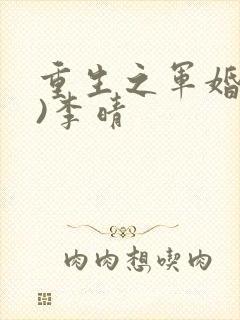 重生之军婚
)李晴
肉肉想喫肉